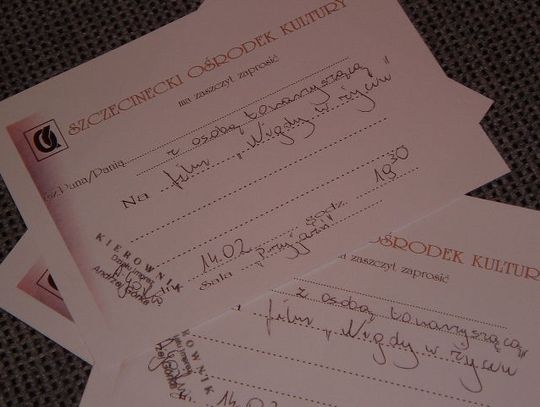 SZCZECINECKI OŚRODEK KULTURY
ma zaszczyt zaprosić
Sz. Pana/Panią z osobą towarzyszącą
Na film „Nigdy w życiu"
14.02 godz. 19³⁰
Sala „przyjaźń"
KIEROWNIK
Działu Imprez
Andrzej Górka
OŚRODEK KULTURY
ma zaszczyt zaprosić
z osobą towarzyszącą
film „Nigdy w życiu
ROWNIK
14.02